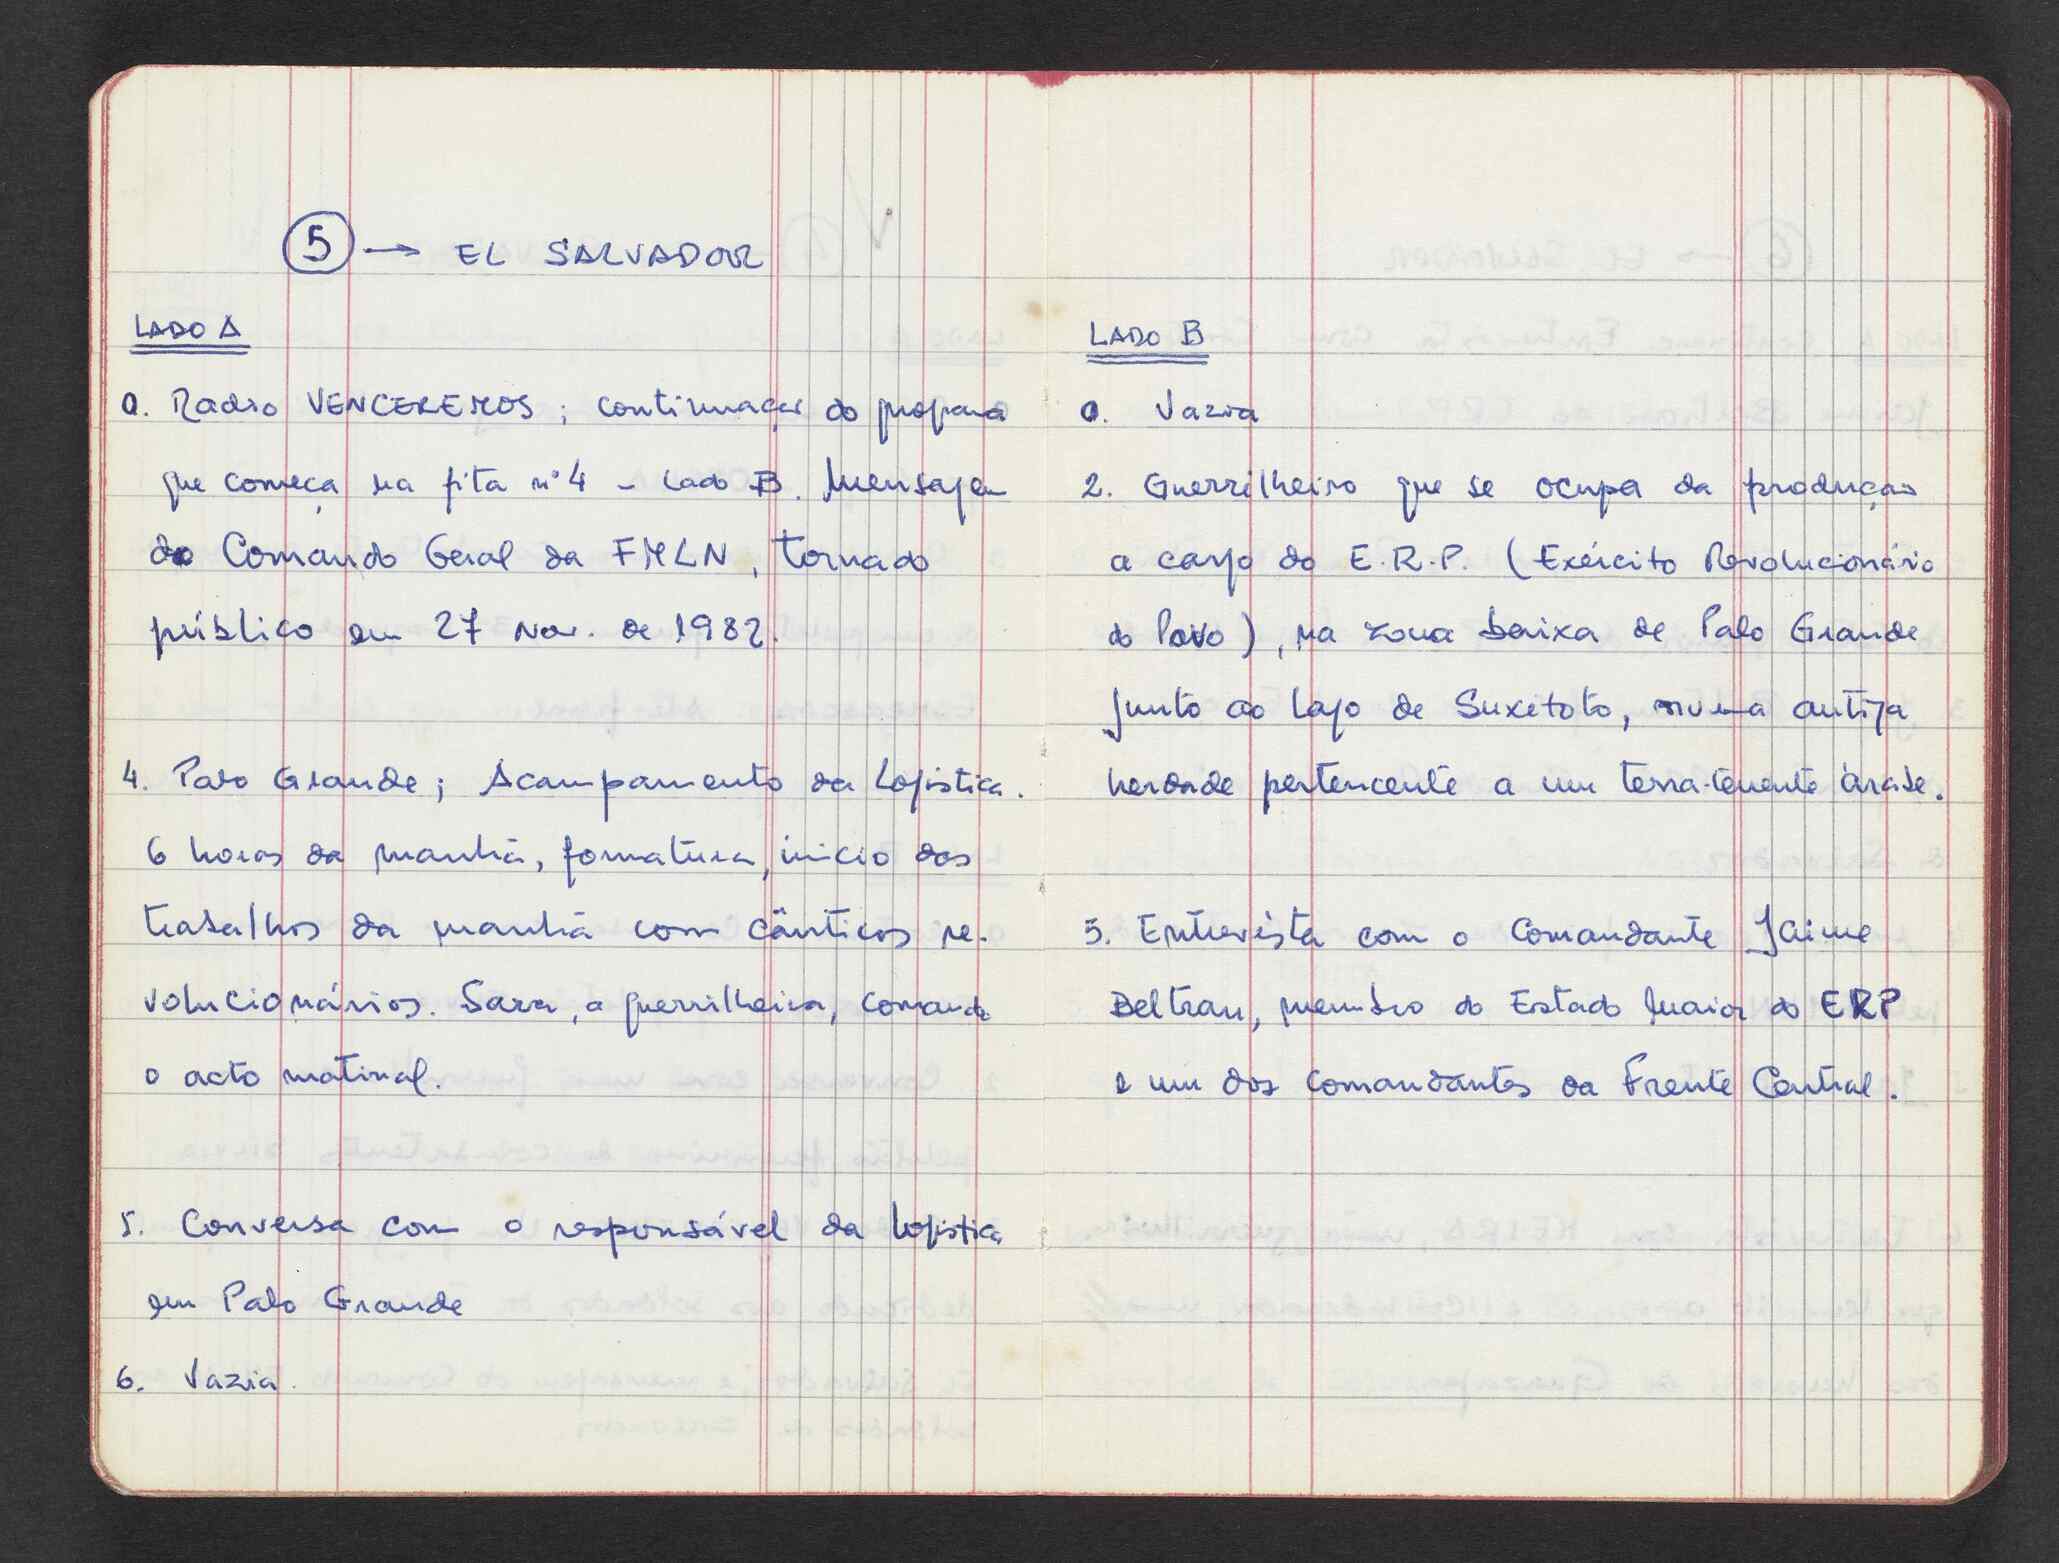 5 → EL SALVADOR
LADO A
0. Radio VENCEREMOS; continuação do programa
que começa na fita nº 4 - Lado B. Mensagem
do Comando Geral da FMLN, tornado
público em 27 Nov. de 1982.
4. Palo Grande; Acampamento da Logistica.
6 horas da manhã, formatura, inicio dos
trabalhos da manhã com cânticos re-
volucionários. Sara, a guerrilheira, comanda
o acto matinal.
5. Conversa com o responsável da Logistica
em Palo Grande
6. Vazia.
LADO B
0. Vazia
2. Guerrilheiro que se ocupa da produção
a cargo do E.R.P. (Exército Revolucionário
do Povo), na zona baixa de Palo Grande
junto ao Lago de Suxitoto, numa antiga
herdade pertencente a um terra-tenente árabe.
3. Entrevista com o Comandante Jaime
Beltran, membro do Estado Maior do ERP
e um dos comandantes da Frente Central.